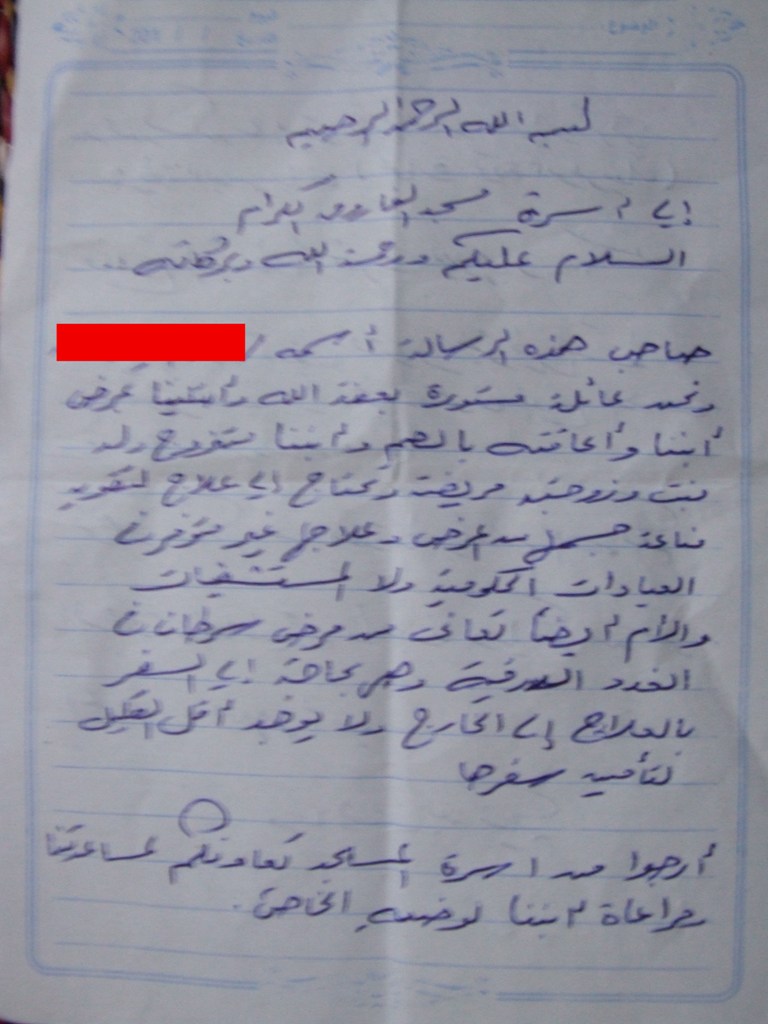 بسم الله الرحمن الرحيم
إلى أسرة مسجد الفاروق الكرام
السلام عليكم ورحمة الله وبركاته
صاحب هذه الرسالة أسمه
ونحن عائلة مستورة بعفة الله وأبتلينا بمرض
أبننا وأعاقته بالصم وأبننا متزوج ولد
بنت وزوجته مريضة وتحتاج إلى علاج لتقوية
مناعة جسمها من المرض وعلاجها غير متوفر في
العيادات الحكومية ولا المستشفيات
والأم أيضاً تعاني من مرض سرطان في
الغدد الدرقية وهي بحاجة إلى السفر
بالعلاج إلى الخارج ولا يوجد أقل القليل
لتأمين سفرها
أرجوا من اسرة المسجد تعاونكم لمساعدتنا
ومراعاة أبننا لوضعه الخاص.